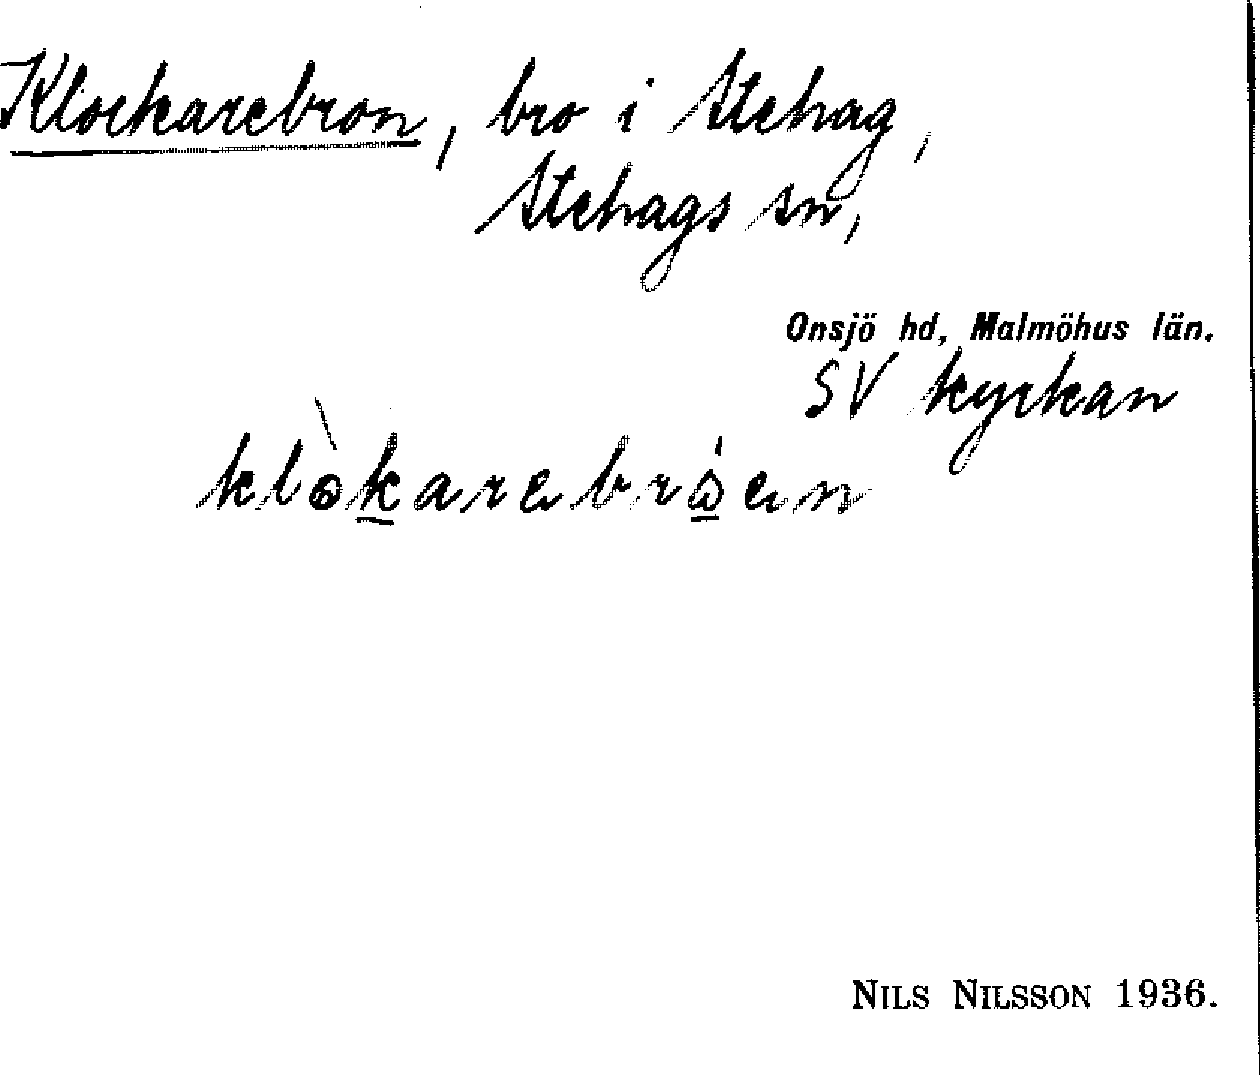 Klockarebron, bro i Stehag,
Stehags sn,
Onsjö hd, Malmöhus län.
SV kyrkan
klòkarebróen
NILS NILSSON 1936.